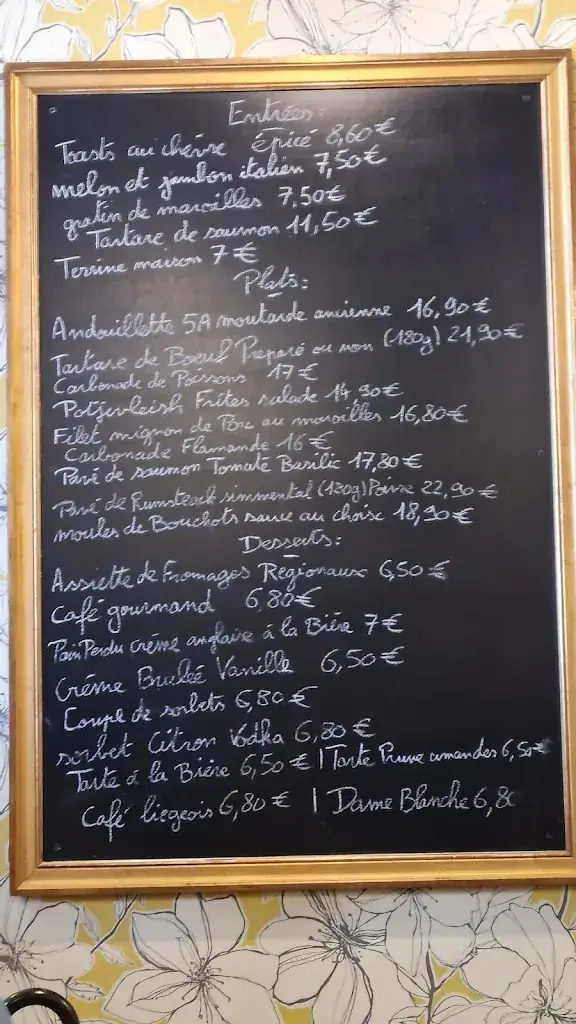 Entrées:
Toasts au chèvre épicé 8,60€
melon et jambon italien 7,50€
gratin de maroilles 7,50€
Tartare de saumon 11,50€
Terrine maison 7€
Plats:
Andouillette 5A moutarde ancienne 16,90€
Tartare de Boeuf Preparé ou non (180g) 21,90€
Carbonade de Poissons 17€
Potjevleish Frites salade 14,90€
Filet mignon de Porc au maroilles 16,80€
Carbonade Flamande 16€
Pavé de saumon Tomate Basilic 17,80€
Pavé de Rumsteack simmental (180g) Poivre 22,90€
moules de Bouchots sauce au choix 18,90€
Desserts:
Assiette de Fromages Régionaux 6,50€
Café gourmand 6,80€
Pain Perdu crème anglaise à la Bière 7€
Crème Bruleé Vanille 6,50€
Coupe de sorbets 6,80€
sorbet Citron Vodka 6,80€
Tarte à la Bière 6,50€ | Tarte Prune amandes 6,50€
Café liegeois 6,80€ | Dame Blanche 6,80